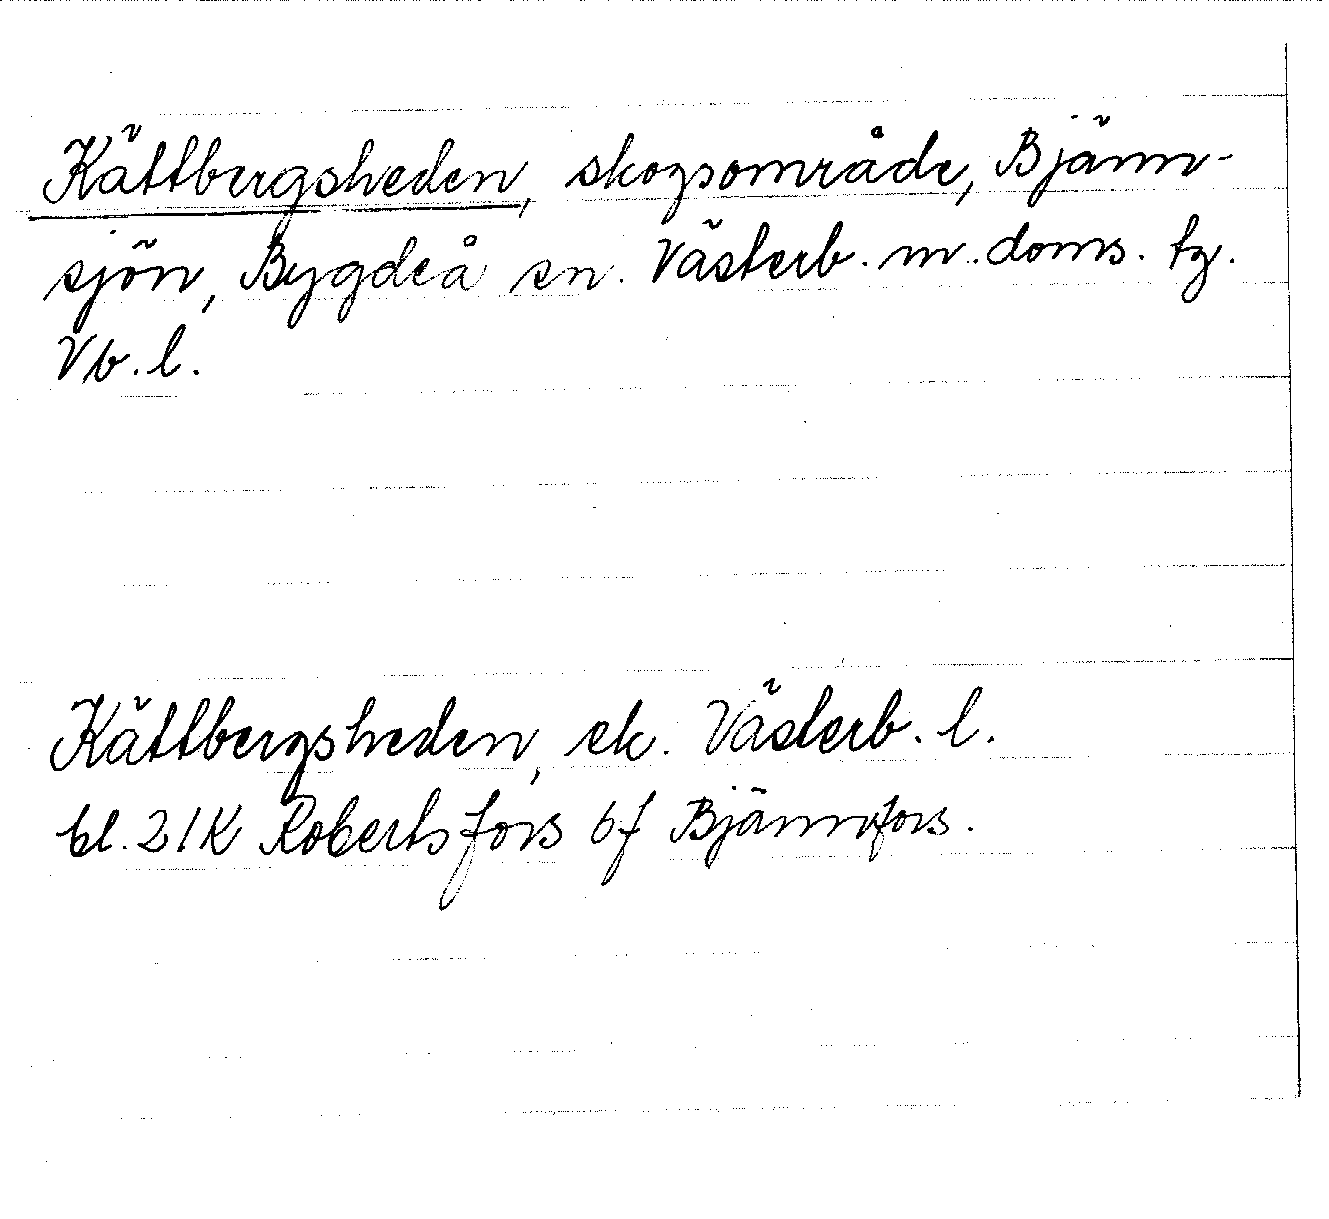 Kättbergsheden, skogsområde, Bjänn-
sjön, Bygdeå sn. Västerb. m. doms. tg.
Vb. l.
Kättbergsheden, ek. Västerb. l.
bl. 21K Robertsfors 6f Bjännfors.